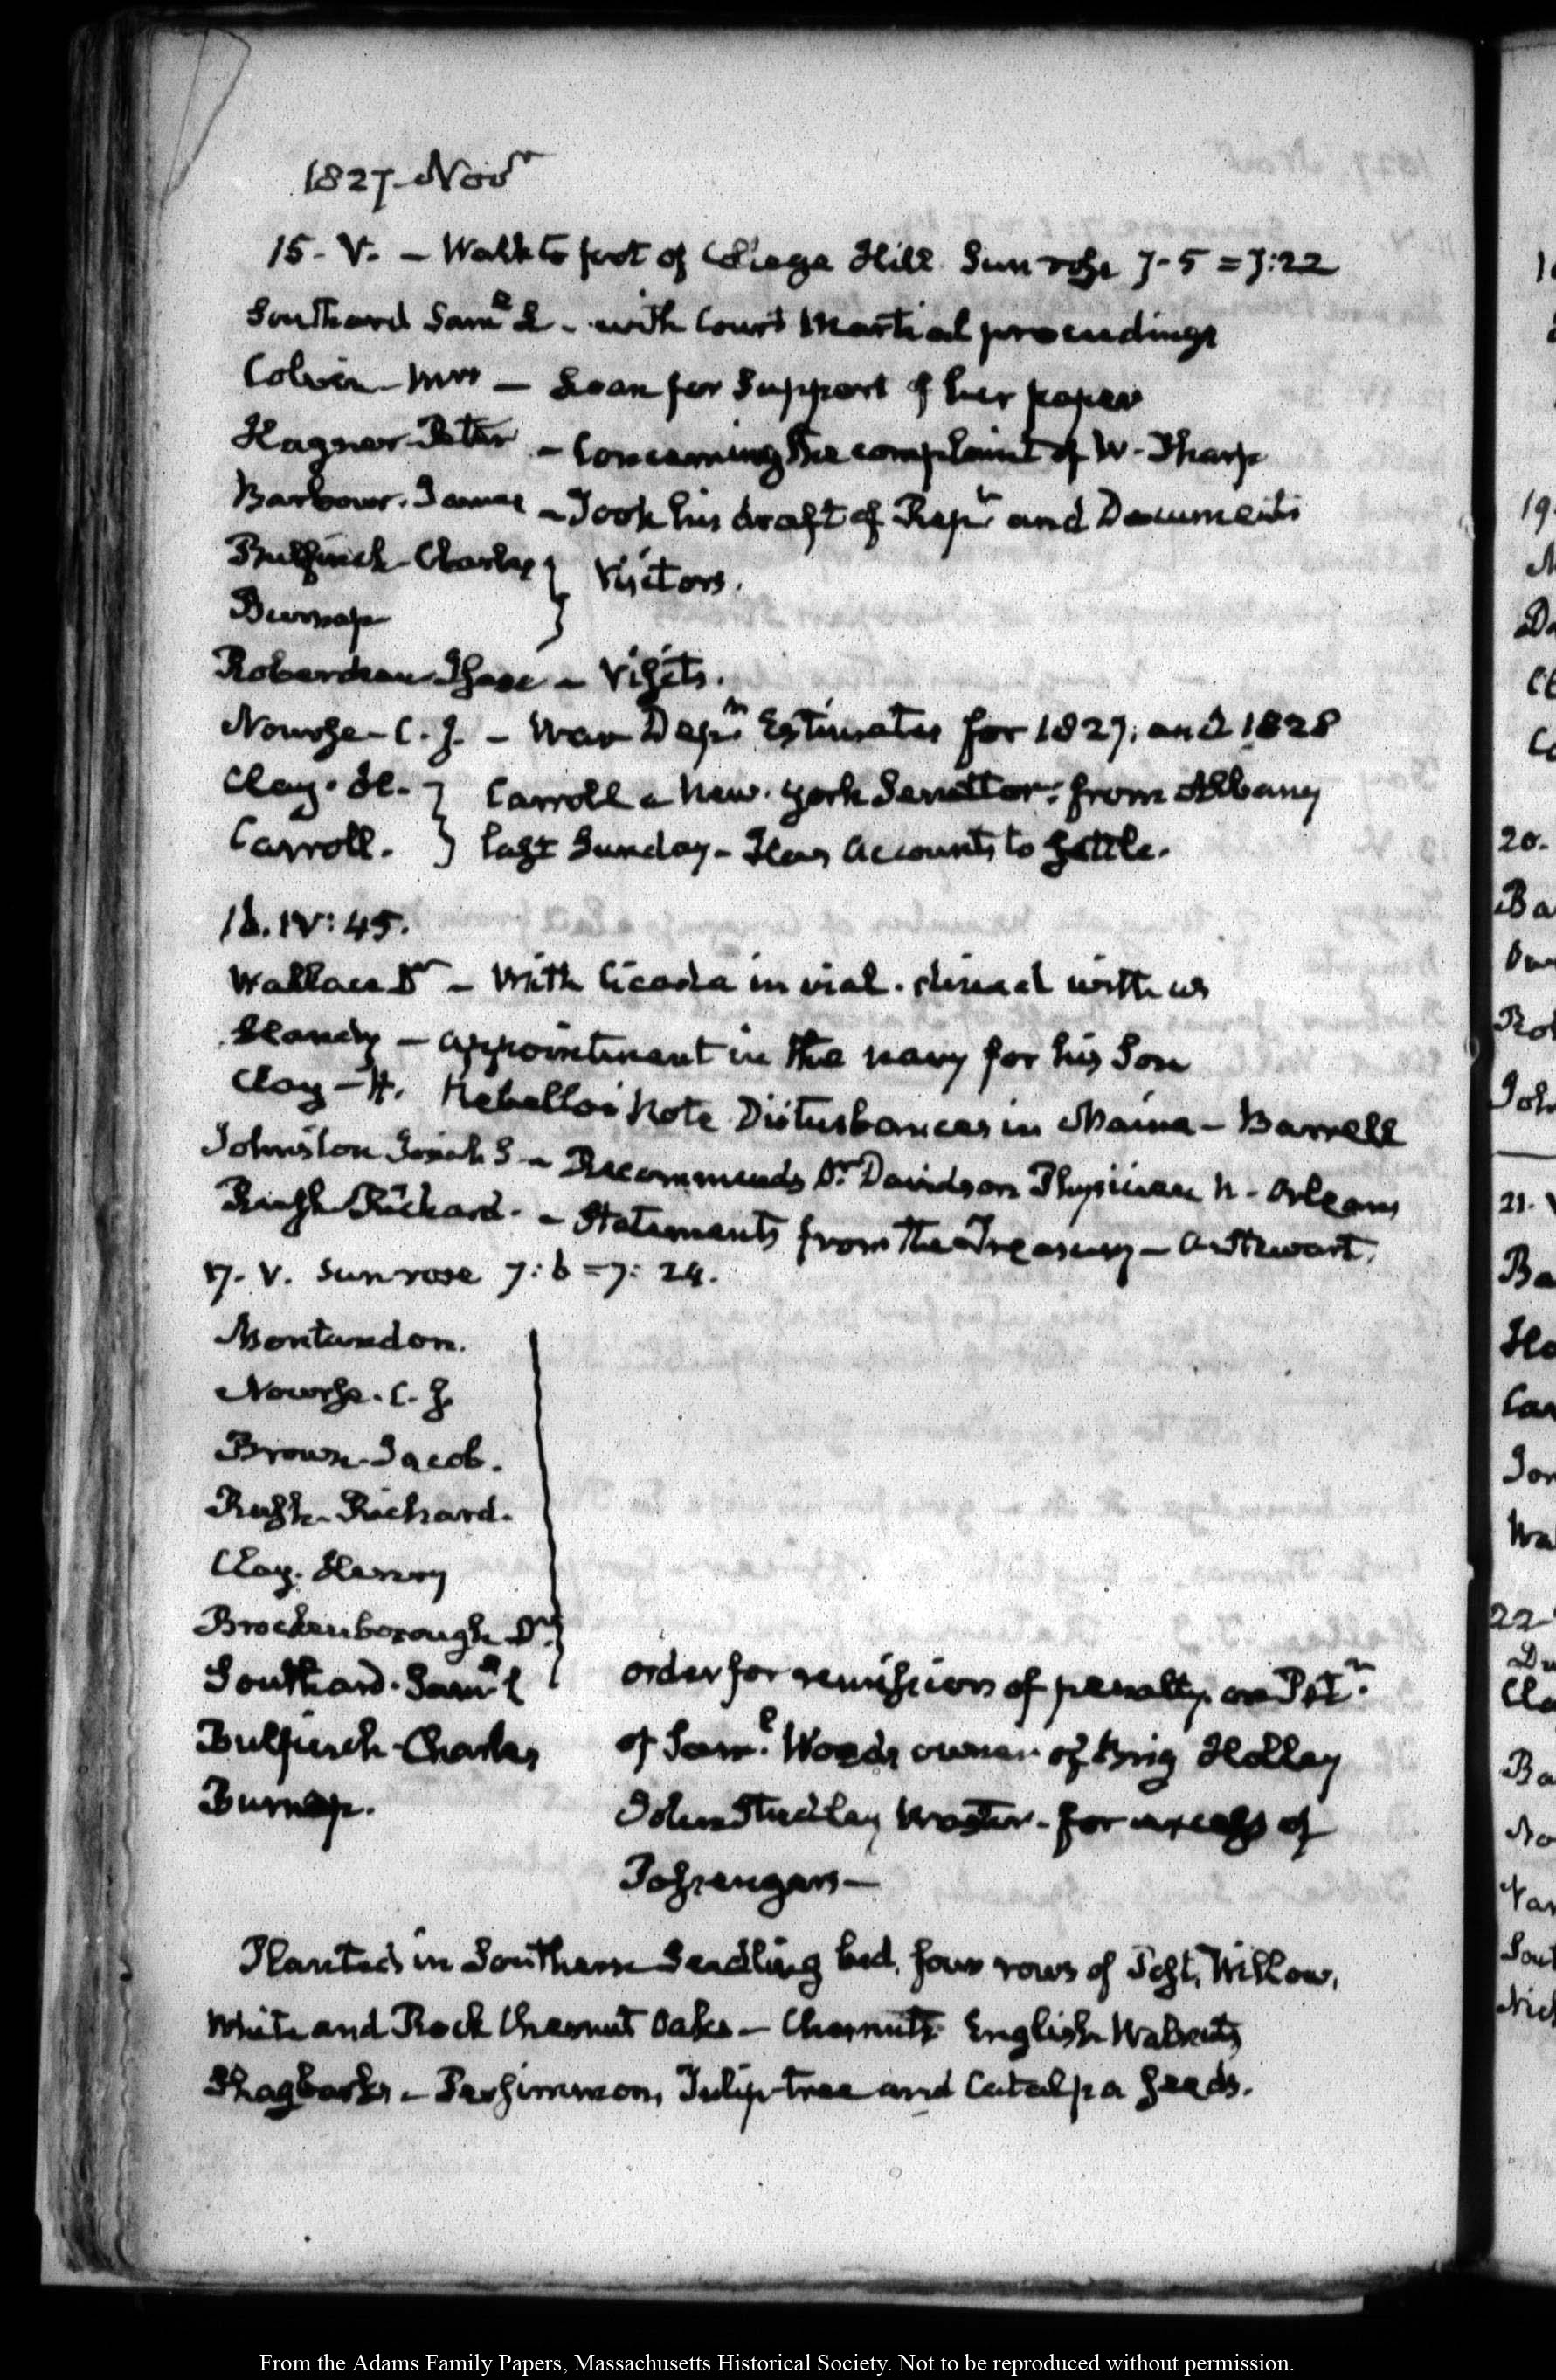 1827. Novr
15. V. – Walk to foot of College Hill. Sun rose 7-5 = 7:22
Southard Saml L – with Court Martial proceedings
Colvin – Mrs – Loan for Support of her paper
Hagner. Peter – Concerning the complaint of W. Tharp
Barbour. James – Took his draft of Rept and Documents
Bulfinch – Charles } Visitors.
Burnap }
Roberdeau Isaac – Visits.
Nourse – C. J. – War Dept Estimates for 1827. and 1828
Clay. H. } Carroll a New. York Senator. from Albany
Carroll. } last Sunday – Has Accounts to settle.
16. IV: 45.
Wallace Dr – With Cicada in vial. dined with us
Handy – appointment in the navy for his Son
Clay – H. Rebello's Note Disturbances in Maine – Barrell
Johnston Josiah S – Recommends Dr Davidson Physician N. Orleans
Rush Richard. – Statements from the Treasury – A. Stewart.
17. V. Sun rose 7:6 = 7:24.
Montandon.
Nourse. C. J.
Brown – Jacob.
Rush – Richard.
Clay. Henry
Brockenborough Dr
Southard. Saml L
Bulfinch – Charles
Burnap.
order for remission of penalty. on Petn
of Saml. Woods owner of Brig Holley
John Studley Master – for excess of
Passengers –
Planted in Southern Seedling bed, four rows of Post, Willow,
White and Rock Chesnut Oaks – Chesnuts English Walnuts
Shagbarks – Persimmon, Tulip-tree and Catalpa seeds.
19.
20.
21.
22
From the Adams Family Papers, Massachusetts Historical Society. Not to be reproduced without permission.